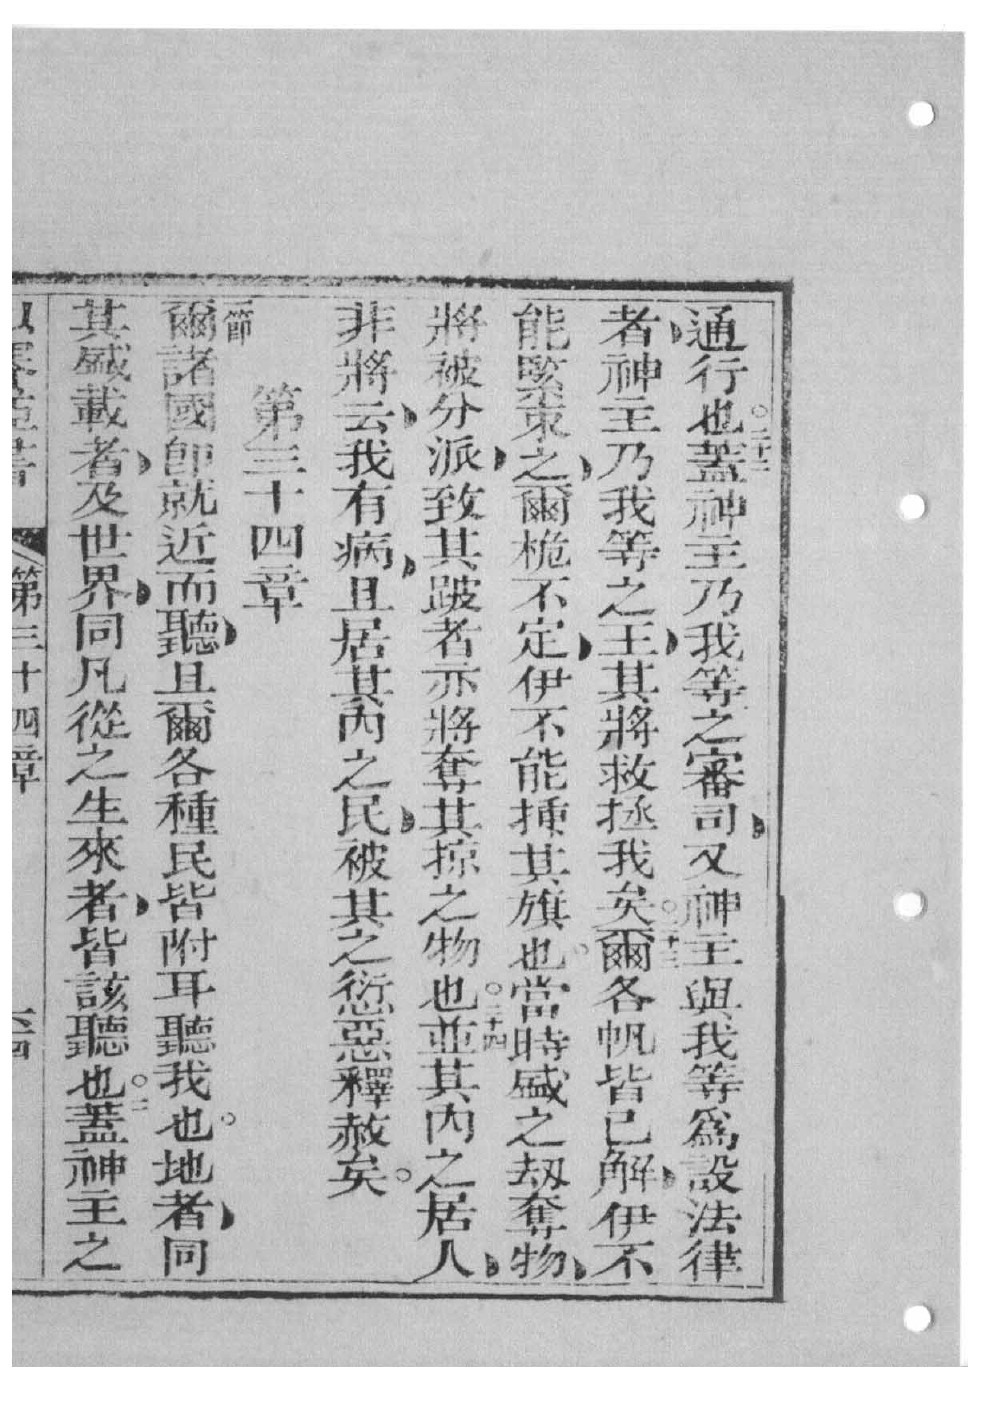 通行也。二十二蓋神主乃我等之審司又神主與我等爲設法律
者神主乃我等之王其將救拯我矣。二十三爾各帆皆已解伊不
能緊束之爾桅不定伊不能揰其旗也。當時盛之刼奪物
將被分派致其跛者亦將奪其掠之物也。二十四並其內之居人
非將云我有病且居其內之民被其之愆惡釋赦矣。
第三十四章
一節爾諸國卽就近而聽且爾各種民皆附耳聽我也。地者同
其盛載者及世界同凡從之生來者皆該聽也。二蓋神主之
第三十四章
六四